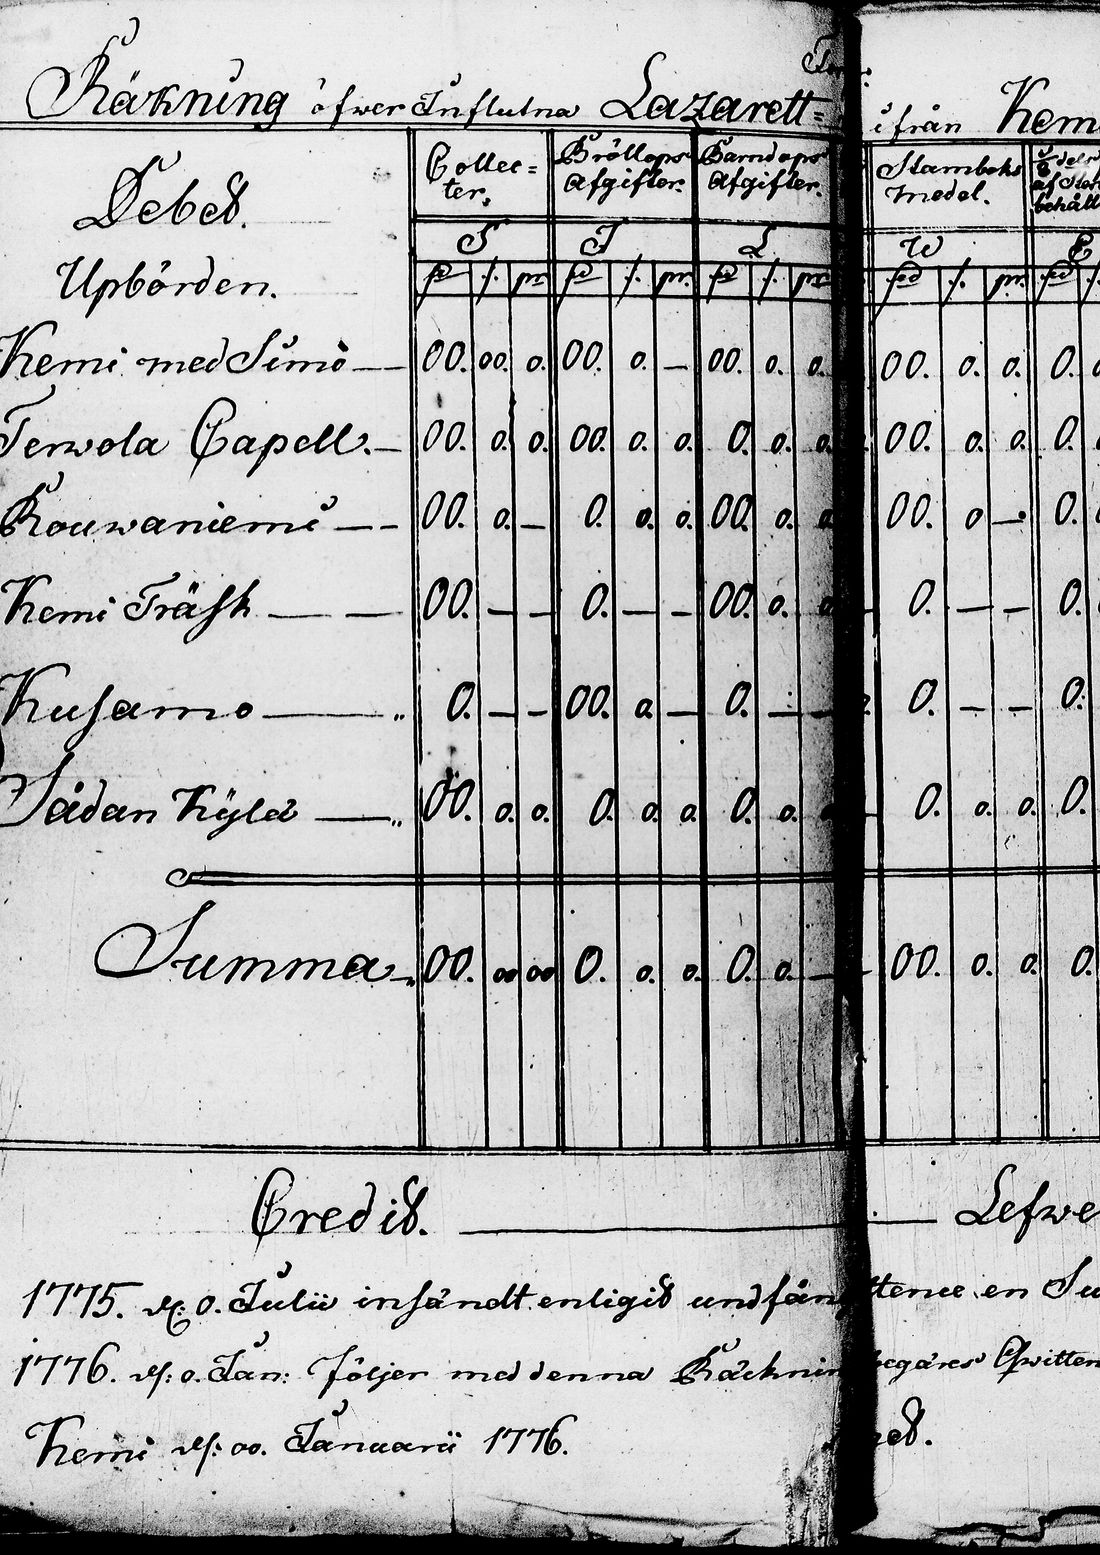 Räkning öfwer Influtna Lazarett= ifrån Kemi
Debet.
Collec=ter. Bröllops Afgifter. Barndops Afgifter. Stamboks medel.
S T L W E
Upbörden.
Kemi med Simo — 00. 00. 0. 00. 0. — 00. 0. 0. 00. 0. 0. 0.
Terwola Capell. — 00. 0. 0. 00. 0. 0. 0. 0. 0. 00. 0. 0. 0.
Rouwaniemi — — 00. 0. — 0. 0. 0. 00. 0. 0. 00. 0 — 0.
Kemi Träsk — — 00. — — 0. — — 00. 0. 0 0. — — 0.
Kusamo — 0. — — 00. 0. — 0. — — 0. — — 0.
Sådan Kylä — 00. 0. 0. 0. 0. 0. 0. 0. 0. 0. 0. 0.
Summa 00. 00 00 0. 0. 0. 0. 0. — 00. 0. 0. 0.
Credit. — Lefwe
1775. d: 0. Julii insändt enligit undfån ttence en Su
1776. d: 0. Jan: följer med denna Räcknin begäres Qwitten
Kemi d: 00. Januarii 1776.